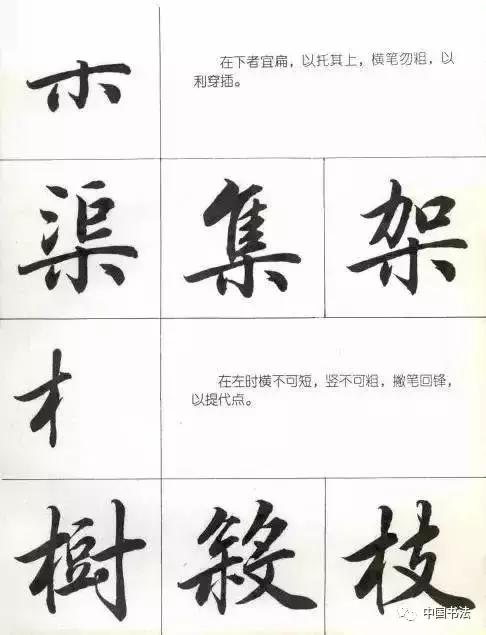 木
在下者宜扁，以托其上，横笔勿粗，以
利穿插。
渠 集 架
木
在左时横不可短，竖不可粗，撇笔回锋，
以提代点。
樹 枝
中国书法